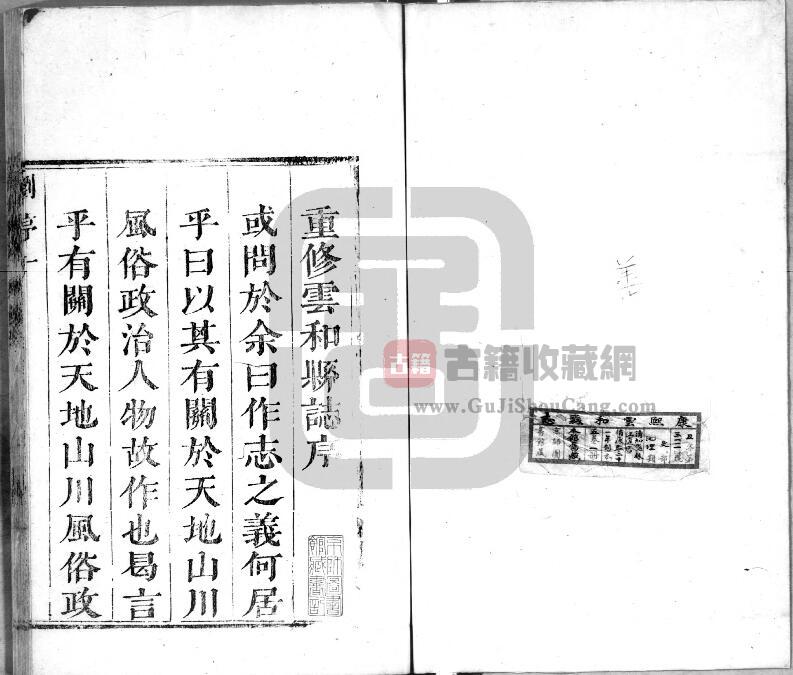 善
康熙雲和縣志
重修雲和縣誌序
或問於余曰作志之義何居
乎曰以其有關於天地山川
風俗政治人物故作也曷言
乎有關於天地山川風俗政
劉序一
古籍
古籍收藏網
www.GuJiShouCang.com